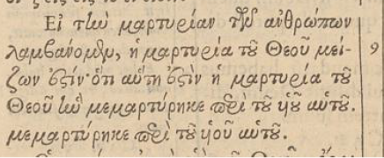 Εἰ τὴν μαρτυρίαν τῶν ἀνθρώπων
λαμβάνομεν, ἡ μαρτυρία τοῦ Θεοῦ μεί- 9
ζων ἐστίν· ὅτι αὕτη ἐστὶν ἡ μαρτυρία τοῦ
Θεοῦ ἣν μεμαρτύρηκε περὶ τοῦ υἱοῦ αὐτοῦ.
μεμαρτύρηκε περὶ τοῦ υἱοῦ αὐτοῦ.